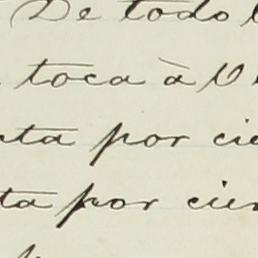 De todo
toca à V
cta por cie
ta por cien